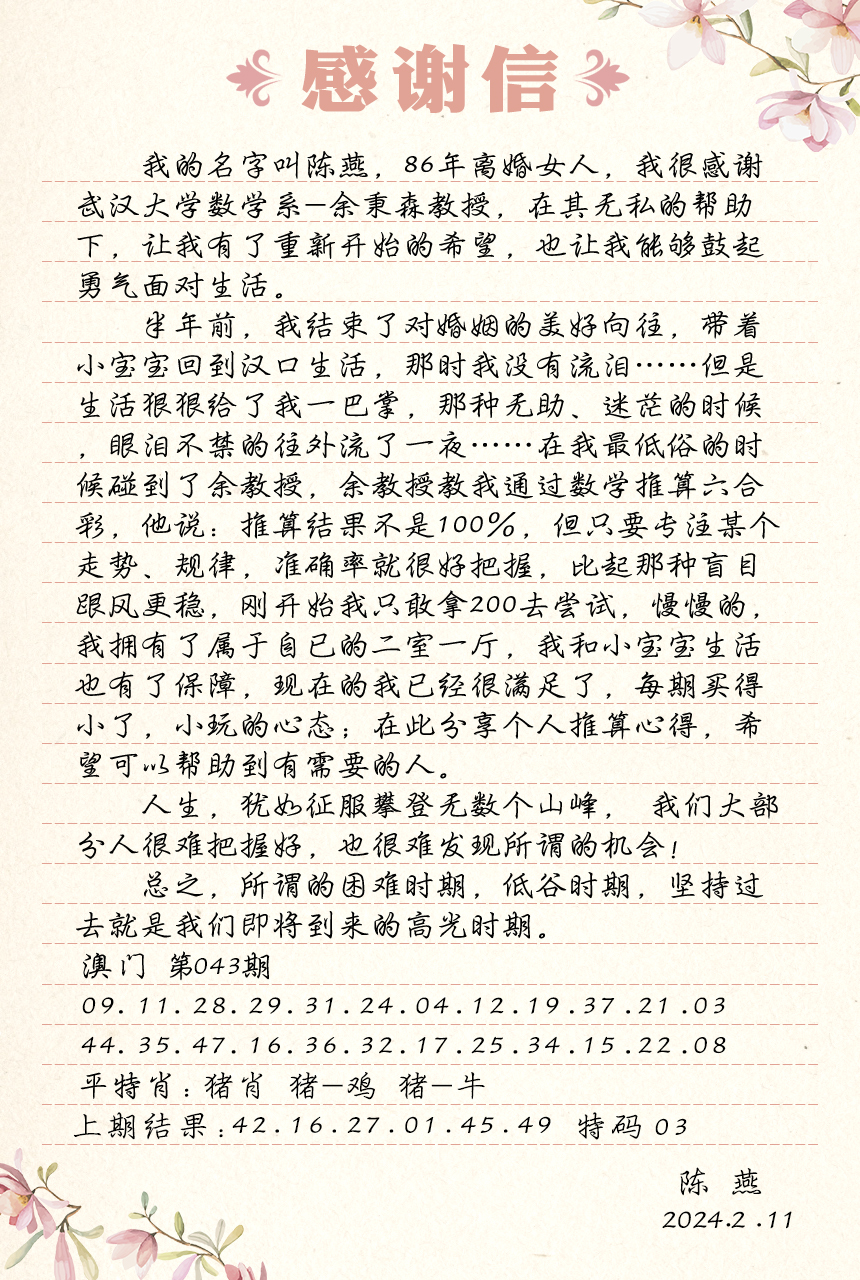 感谢信
我的名字叫陈燕，86年离婚女人，我很感谢
武汉大学数学系—余秉森教授，在其无私的帮助
下，让我有了重新开始的希望，也让我能够鼓起
勇气面对生活。
半年前，我结束了对婚姻的美好向往，带着
小宝宝回到汉口生活，那时我没有流泪……但是
生活狠狠给了我一巴掌，那种无助、迷茫的时候
，眼泪不禁的往外流了一夜……在我最低俗的时
候碰到了余教授，余教授教我通过数学推算六合
彩，他说：推算结果不是100%，但只要专注某个
走势、规律，准确率就很好把握，比起那种盲目
跟风更稳，刚开始我只敢拿200去尝试，慢慢的，
我拥有了属于自已的二室一厅，我和小宝宝生活
也有了保障，现在的我已经很满足了，每期买得
小了，小玩的心态；在此分享个人推算心得，希
望可以帮助到有需要的人。
人生，犹如征服攀登无数个山峰， 我们大部
分人很难把握好，也很难发现所谓的机会！
总之，所谓的困难时期，低谷时期，坚持过
去就是我们即将到来的高光时期。
澳门 第043期
09.11.28.29.31.24.04.12.19.37.21.03
44.35.47.16.36.32.17.25.34.15.22.08
平特肖：猪肖 猪—鸡 猪—牛
上期结果：42.16.27.01.45.49 特码 03
陈 燕
2024.2.11